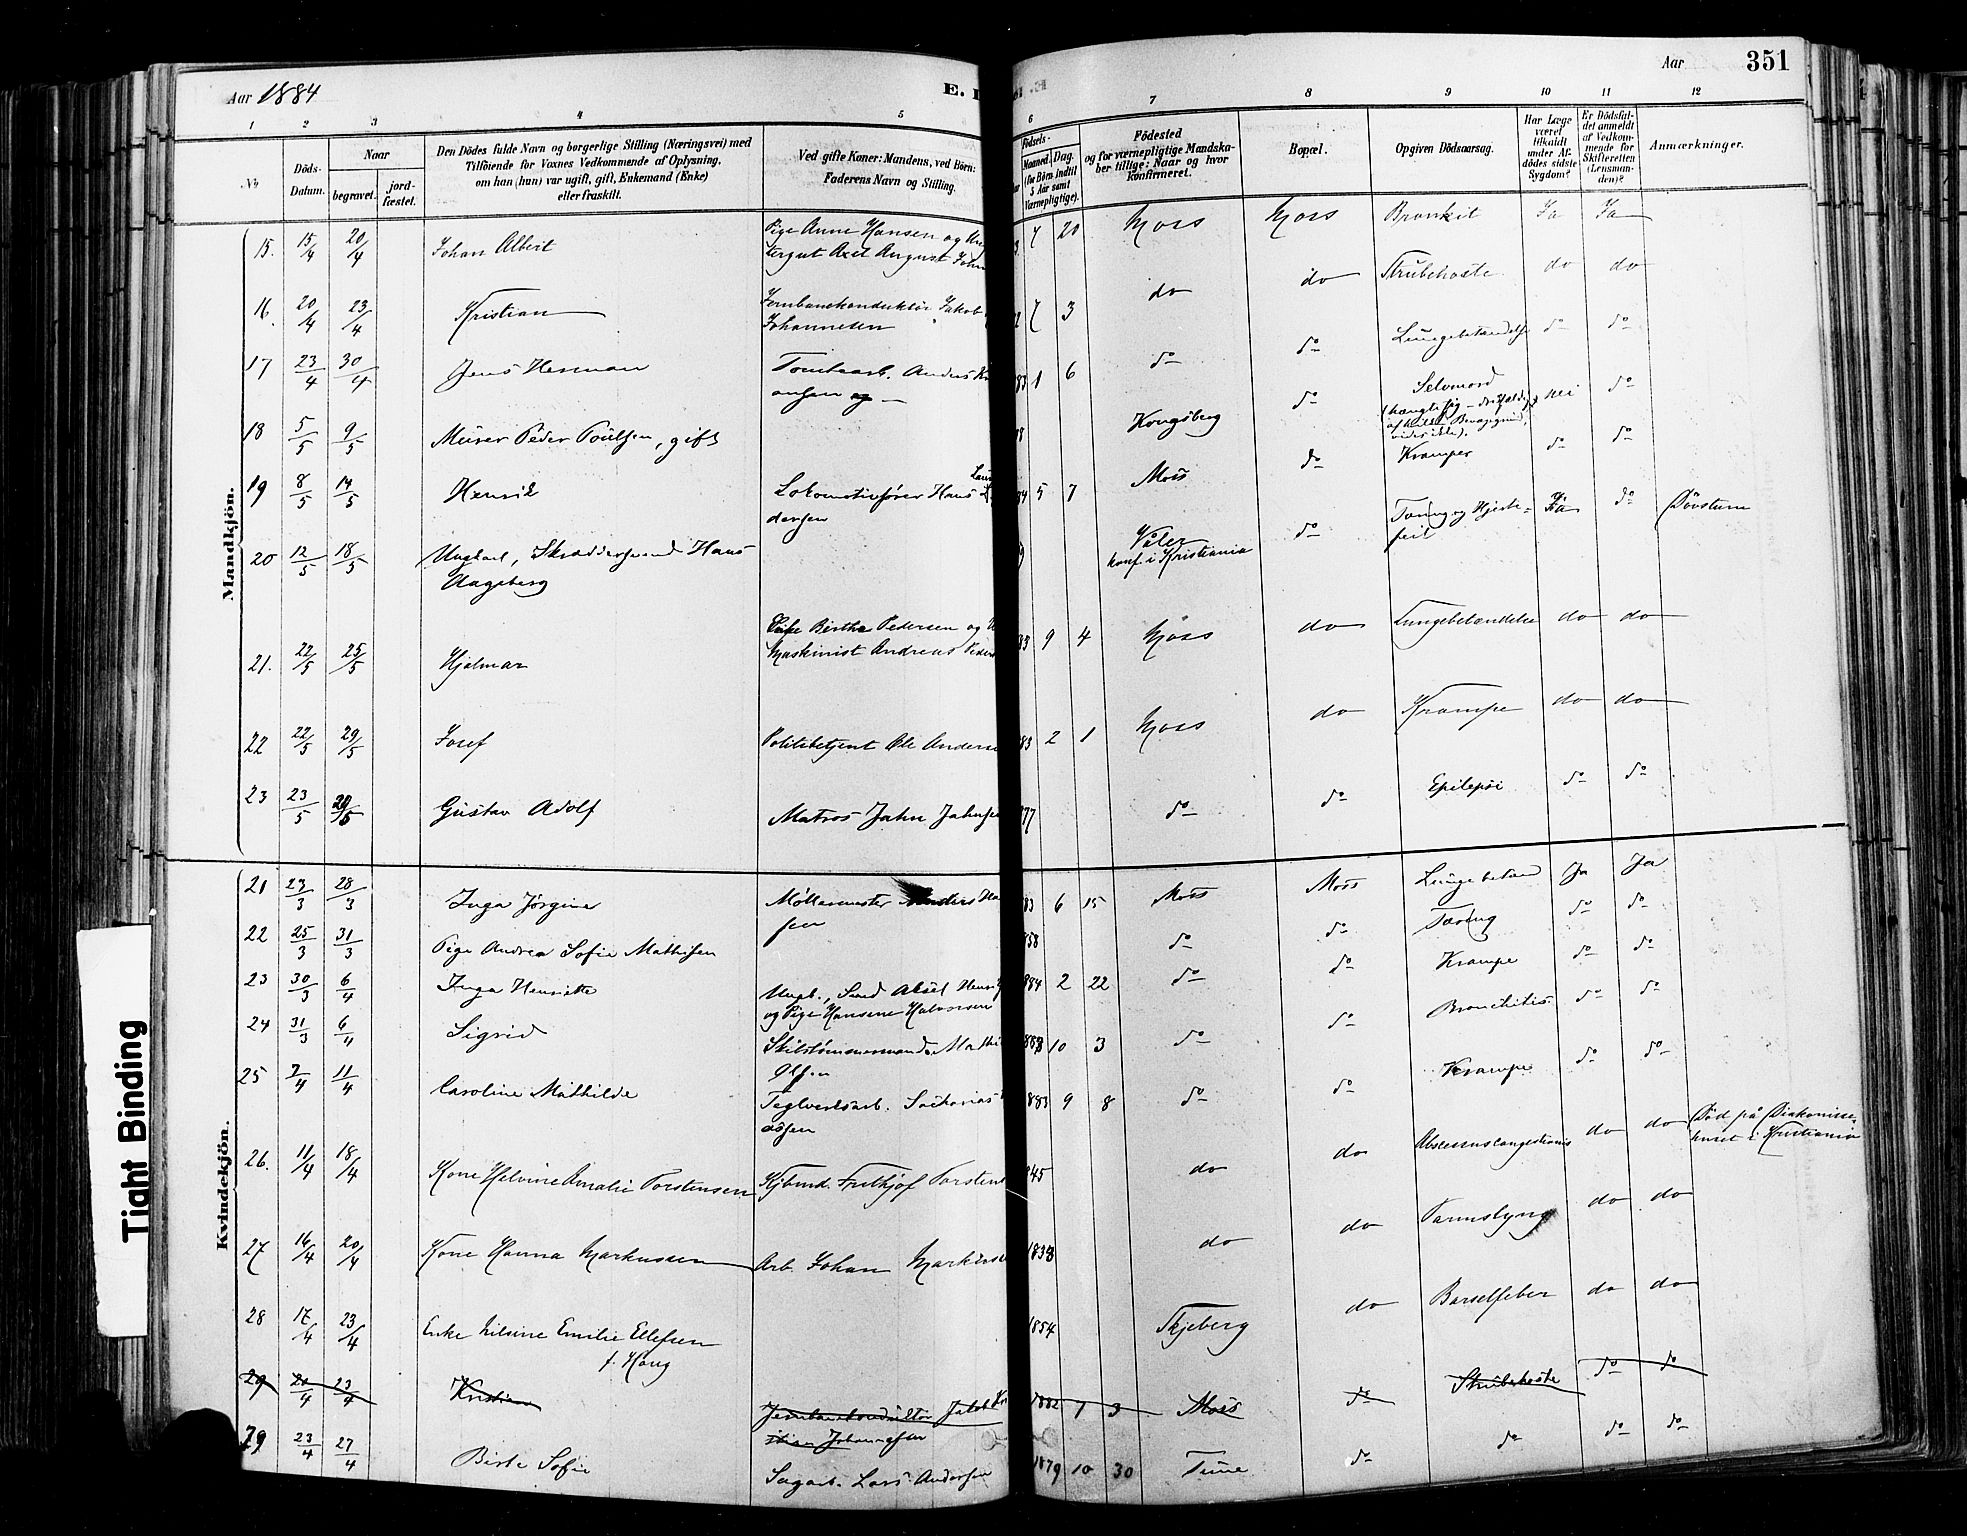 Aar 1884
E.
Aar
351
1 2 3 4 5 6 7 8 9 10 11 12
No
Döds-Datum.
Naar
begravet.
jord-fæstet.
Den Dödes fulde Navn og borgerlige Stilling (Næringsvei) med
Tilföiende for Voxnes Vedkommende af Oplysning,
om han (hun) var ugift, gift, Enkemand (Enke)
eller fraskilt.
Ved gifte Koner: Mandens, ved Börn:
Faderens Navn og Stilling.
Födsels-
Maaned. Dag.
(for Börn indtil
5 Aar samt
Værnepligtige).
Födested
og for værnepligtige Mandska-
ber tillige: Naar og hvor
konfirmeret.
Bopæl.
Opgiven Dödsaarsag.
Har Læge
været
tilkaldt
under Af-
dödes sidste
Sygdom?
Er Dödsfal-
det anmeldt
af Vedkom-
mende for
Skifteretten
(Lensman-
den)?
Anmærkninger.
Mandkjön.
15. 15/4 20/4 Johan Albert Pige Anne Hansen og
Axel August 7 20 Moss Moss Bronkit Ja Ja
16. 20/4 23/4 Kristian Jernbanekonduktör Jakob
Johannesen 3 do do Strubehoste do do
17 23/4 30/4 Jens Herman Tomtearb. Anders
83 1 6 do do Lungebetændelse do do
18 5/5 9/5 Murer Peder Poulsen, gift Kongsberg do Selvmord
(hængte sig
vides ikke). nei do
19 8/5 14/5 Henrik Lokomotivfører Hans
dersen 84 5 7 Moss do Kramper do do
20 12/5 18/5 Ungkarl, Skræddersvend Hans
Aageberg Våler
konf. i Kristiania do Tæring og Hjerte-
feil Ja do Døvstum
21. 22/5 25/5 Hjalmar Pige Birthe Pedersen og
Maskinist Andreas 83 9 4 Moss do Lungebetændelse do do
22 22/5 29/5 Josef Politibetjent Ole Anderse 83 2 1 Moss do Krampe do do
23 23/5 29/5 Gustav Adolf Matros Jahn Jahnse 77 do do Epilepsi do do
Kvindekjön.
21 23/3 28/3 Inga Jørgine Møllermester Anders Ha
sen 83 6 15 Moss Moss Lungebetænd Ja Ja
22 25/3 31/3 Pige Andrea Sofie Mathisen 858 do do Tæring do do
23 30/3 6/4 Inga Henriette Ungk., Smed Aksel Henri
og Pige Hansine Halvorsen 884 2 22 do do Krampe do do
24 31/3 6/4 Sigrid Skibstømmermand
Olsen 10 3 do do Bronchitis do do
25 7/4 11/4 Caroline Mathilde Teglverksarb. Sackarias
assen 883 9 8 do do Krampe do do
26. 11/4 18/4 Kone Helvine Amalie Torstensen Kjbmd. Frithjof Torsten 845 do do Abscessus congestionis do do Død på Diakonisse-
huset i Kristiania
27 16/4 20/4 Kone Hanna Markussen Arb. Johan Markusse 1838 do do Tarmslyng do do
28 17/4 23/4 Enke Nilsine Emilie Ellefsen
f. Haug 1854 Skjeberg do Barselfeber do do
29 20/4 23/4 Kristian Jernbanekonduktör Jakob
Johannesen 1882 1 3 Moss do Strubehoste do do
29 23/4 27/4 Birte Sofie Sagarb. Lars Andersen 1879 10 30 Tune do do do do
Tight Binding